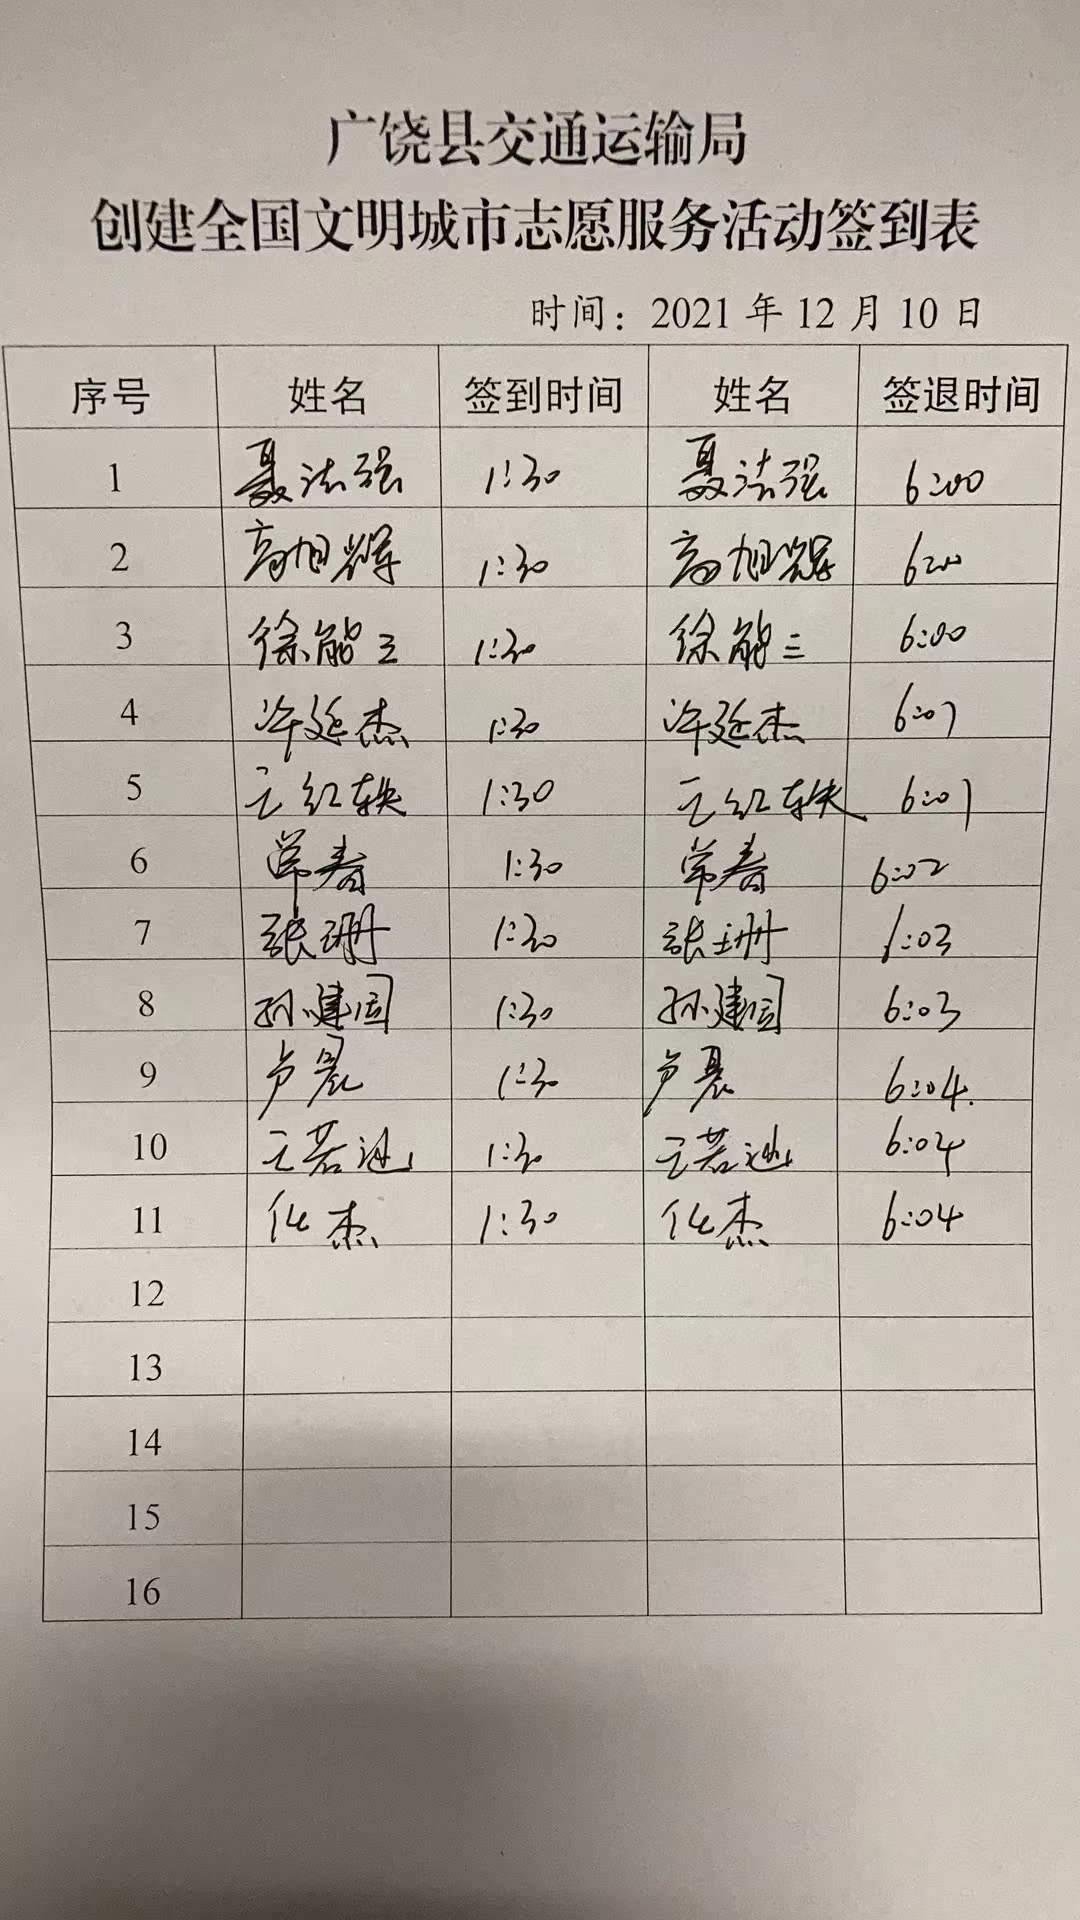 广饶县交通运输局
创建全国文明城市志愿服务活动签到表
时间：2021 年 12 月 10 日
序号 姓名 签到时间 姓名 签退时间
1 聂法强 1:30 聂法强 6:00
2 高旭辉 1:30 高旭辉 6:00
3 徐能三 1:30 徐能三 6:00
4 许延杰 1:30 许延杰 6:01
5 王红轶 1:30 王红轶 6:01
6 常春 1:30 常春 6:02
7 张珊 1:30 张珊 6:03
8 孙建国 1:30 孙建国 6:03
9 1:30 6:04.
10 王若迪 1:30 王若迪 6:04
11 化杰 1:30 化杰 6:04
12
13
14
15
16